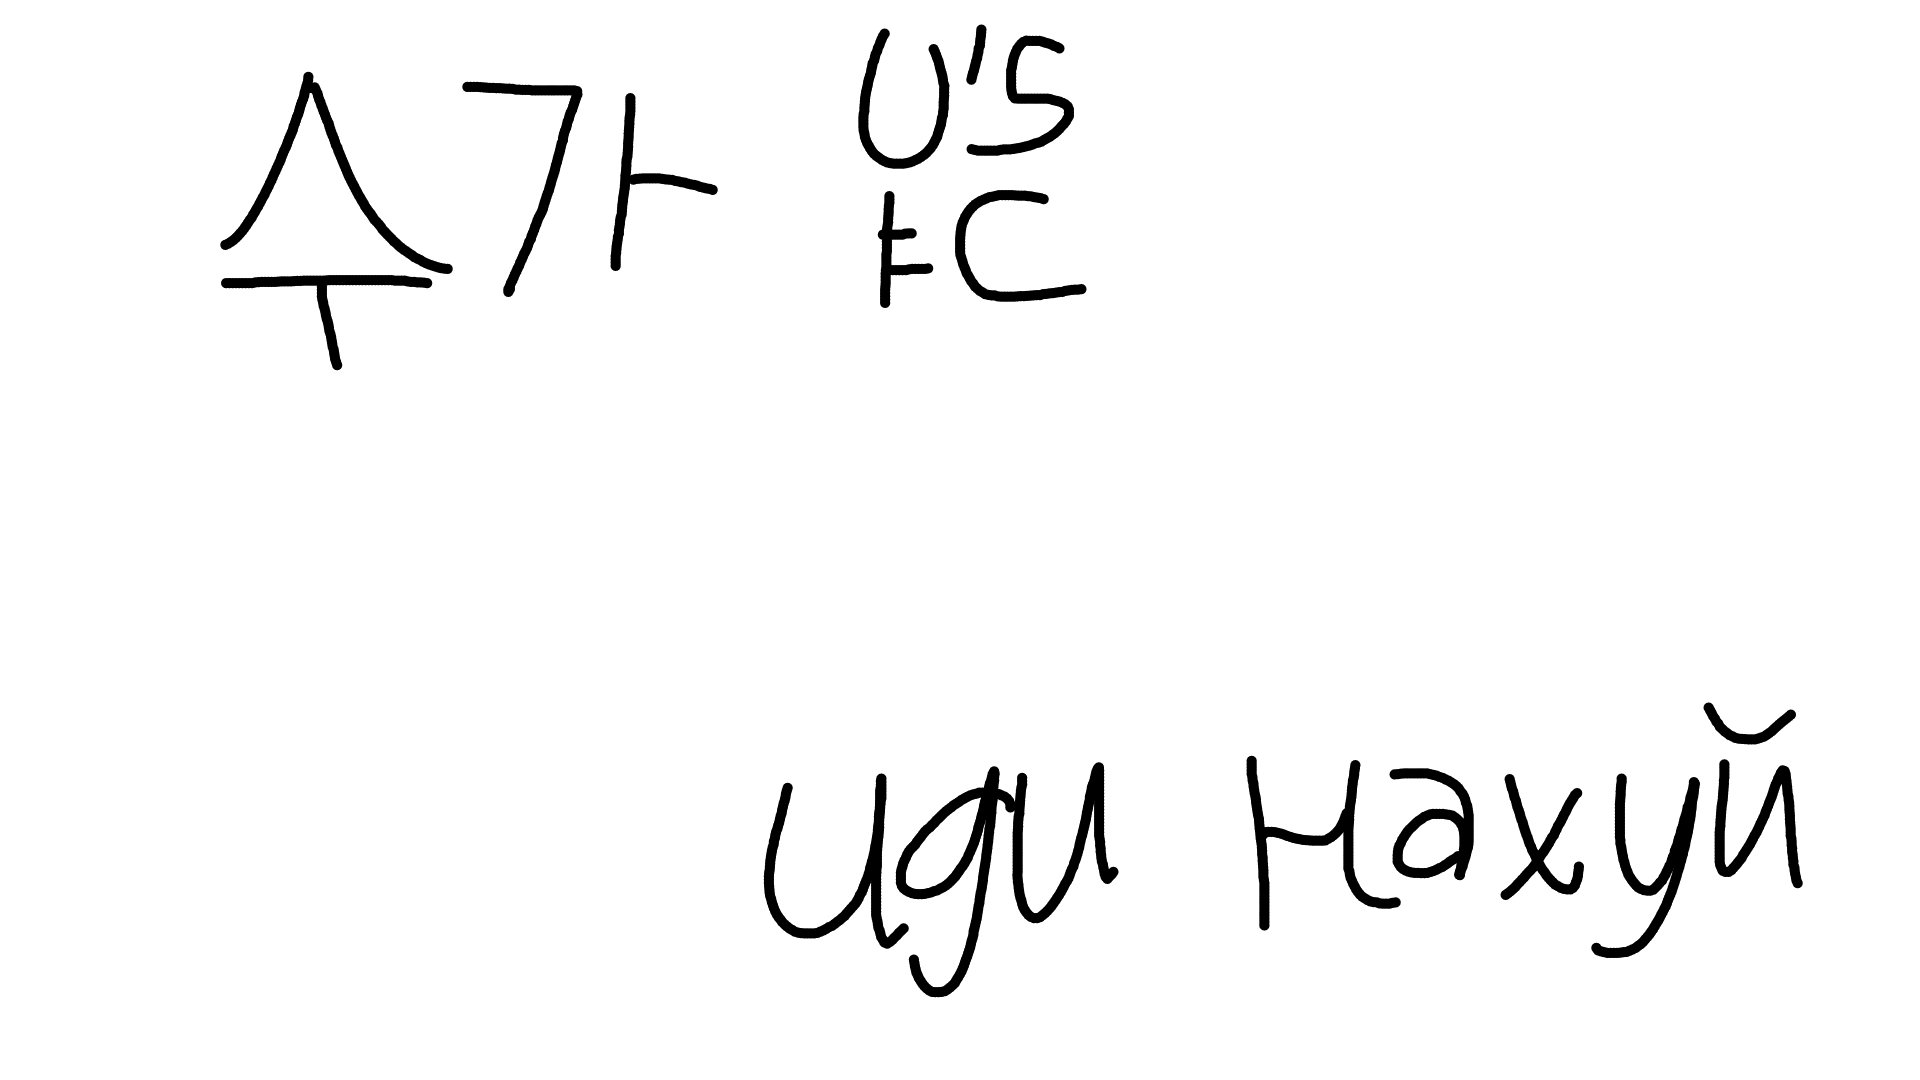 수가 U's
ㅑC
иди нахуй